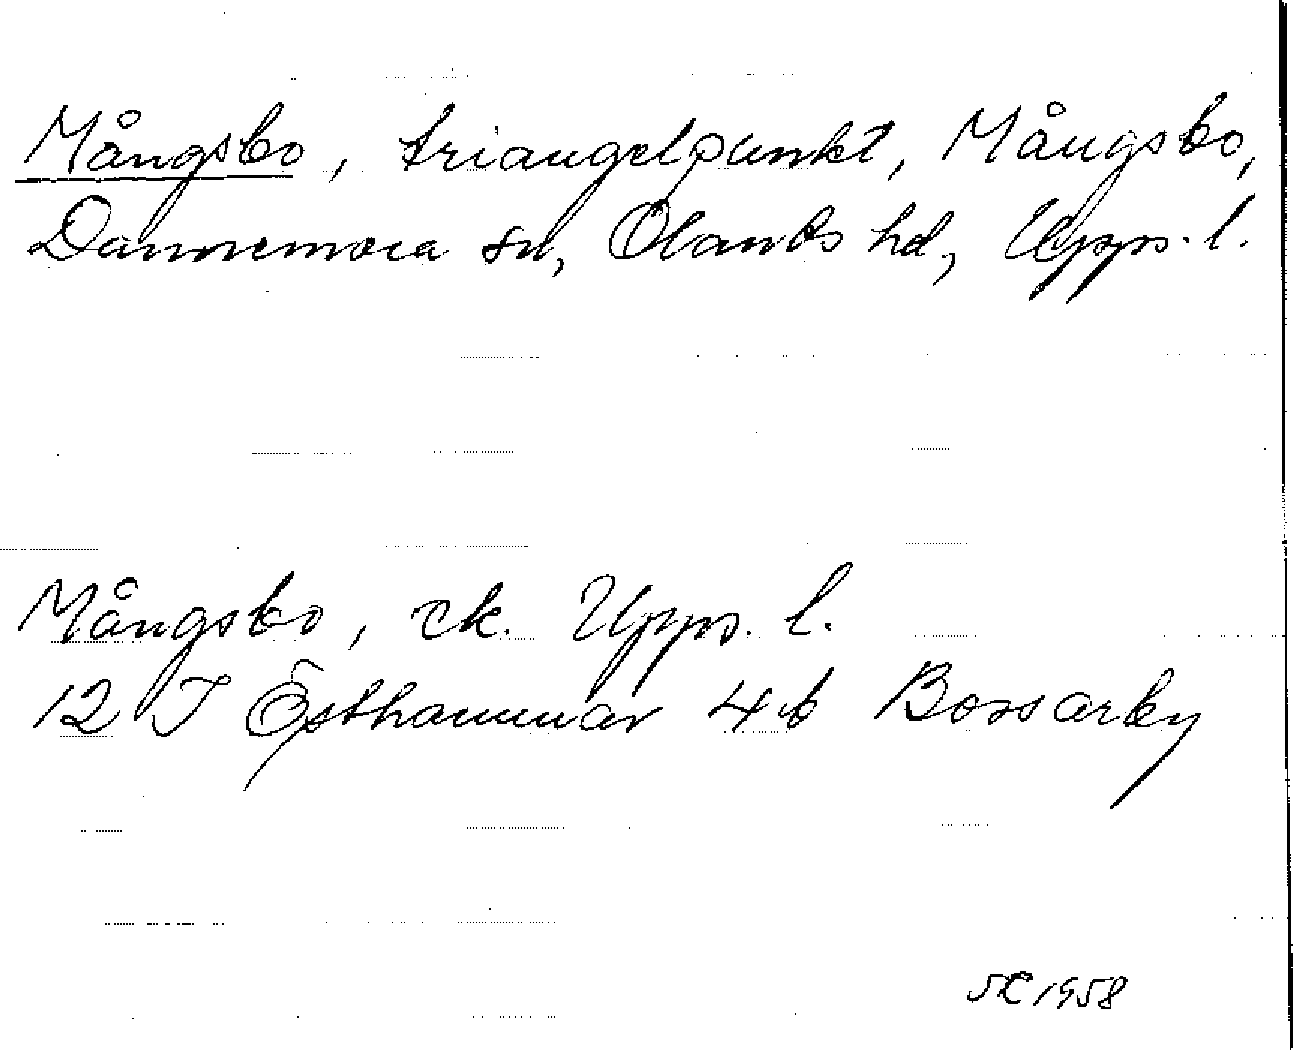 Mångsbo, triangelpunkt, Mångsbo,
Dannemora sn, Olands hd, Upps. l.
Mångsbo, ek. Upps. l.
12 I Östhammar 4 b Bossarby
1958